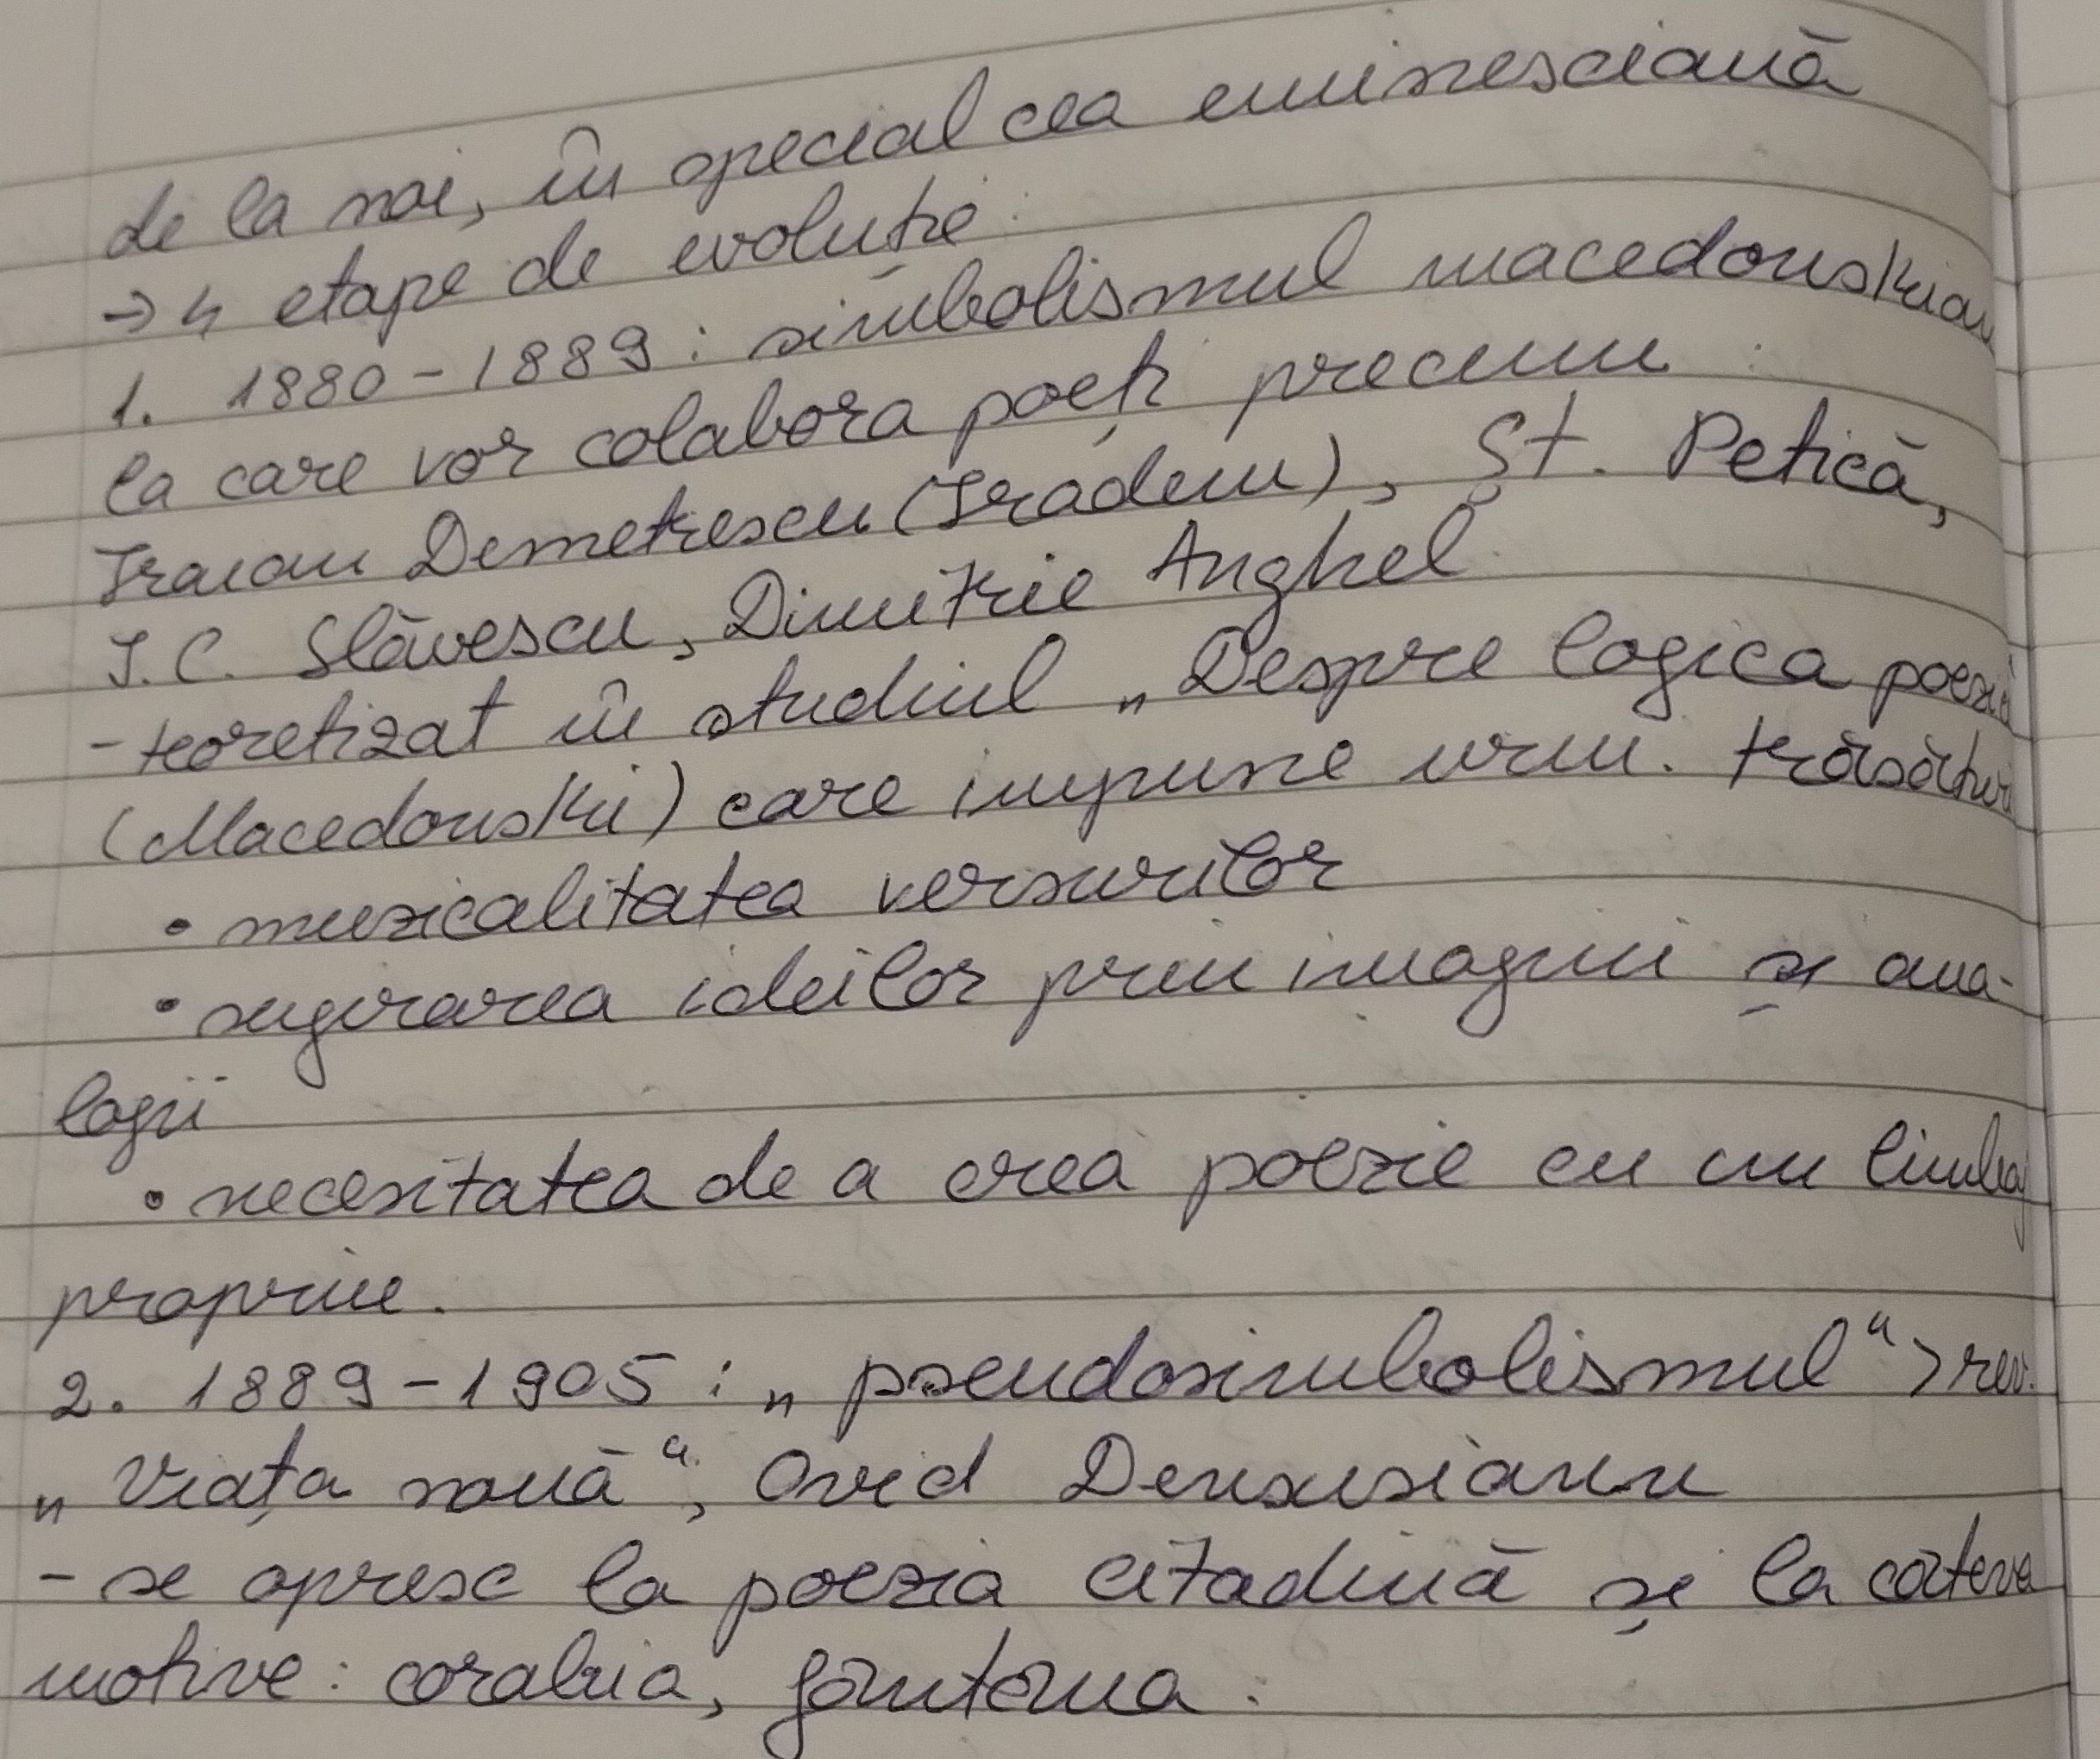 de la noi, în special cea eminesciană
→ 4 etape de evoluție:
1. 1880-1889: simbolismul macedonskian
la care vor colabora poeți precum:
Traian Demetrescu (Tradem), Șt. Petică,
I.C. Slăvescu, Dimitrie Anghel.
- teoretizat în studiul „Despre logica poeziei
(Macedonski) care impune urm. trăsături
• muzicalitatea versurilor
• sugerarea ideilor prin imagini și ana-
logii
• necesitatea de a crea poezie cu un limbaj
propriu.
2. 1889-1905: „pseudosimbolismul" > rev.
„Viața nouă", Ovid Densusianu
- se opresc la poezia citadină și la câteva
motive: corabia, fântâna.